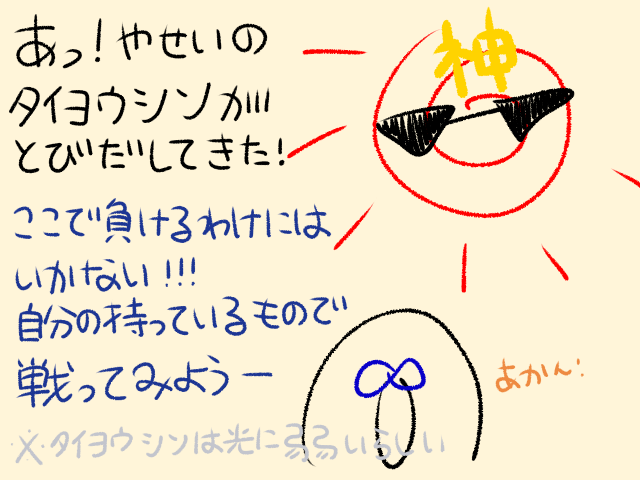 あっ！やせいの
タイヨウシンが
とびだしてきた！
神
ここで負けるわけには
いかない！！！
自分の持っているもので
戦ってみようー
あかん：
※タイヨウシンは光に弱いらしい